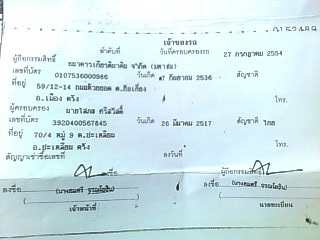 เจ้าของรถ
ลำดับที่ วันที่ครอบครองรถ 27 กรกฎาคม 2554
ผู้ถือกรรมสิทธิ์ ธนาคารเกียรตินาคิน จำกัด (มหาชน)
เลขที่บัตร 0107536000986 วันเกิด กันยายน 2536 สัญชาติ
ที่อยู่ 59/12-14 ต.ทับเที่ยง
อ.เมือง ตรัง โทร.
ผู้ครอบครอง นายโสภส ศรีสวัสดิ์
เลขที่บัตร 3920400567845 วันเกิด 26 มีนาคม 2517 สัญชาติ ไทย
ที่อยู่ 70/4 หมู่ 9 ต.ปะเหลียน
อ.ปะเหลียน ตรัง โทร.
สัญญาเช่าซื้อเลขที่ ลงวันที่
ลงชื่อ ลงชื่อ
เจ้าหน้าที่ นายทะเบียน